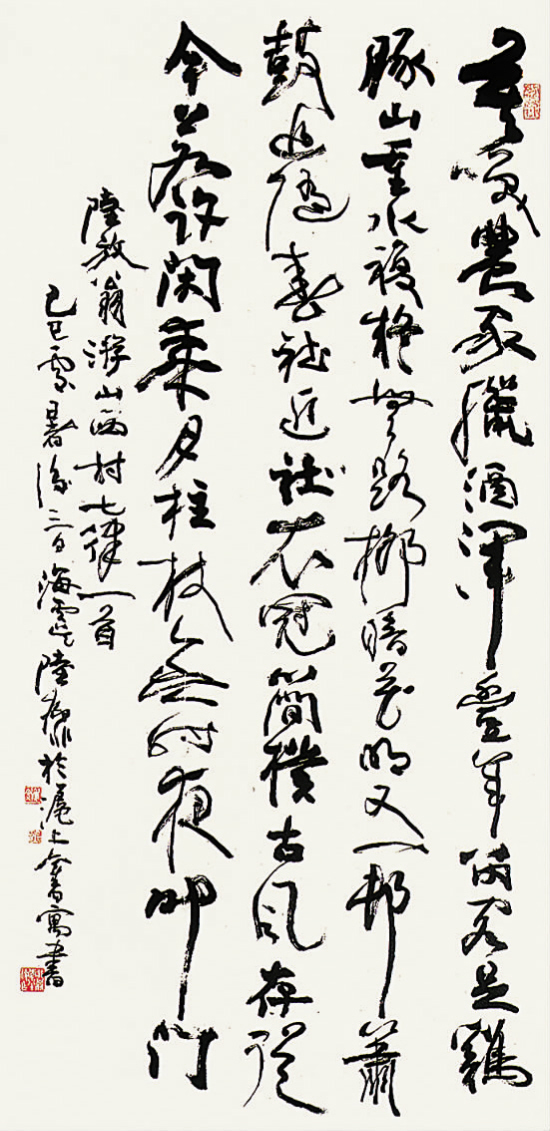 莫笑農家臘酒渾豐年留客足雞
豚山重水複疑無路柳暗花明又一邨簫
鼓追隨春社近社衣冠簡樸古風存從
今若許閑乘月柱杖無時夜叩門
陸放翁游山西村七律一首
己巳處暑後三日海 陸 於滬上 寓書